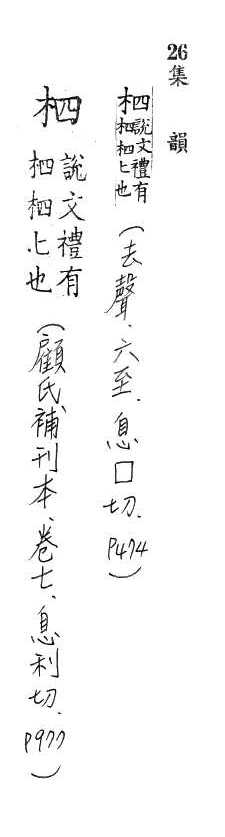 26集 韻
柶 說文禮有柶柶匕也(去聲、六至、息□切、P474)
柶 說文禮有柶柶匕也(顧氏補刊本、卷七、息利切、P977)